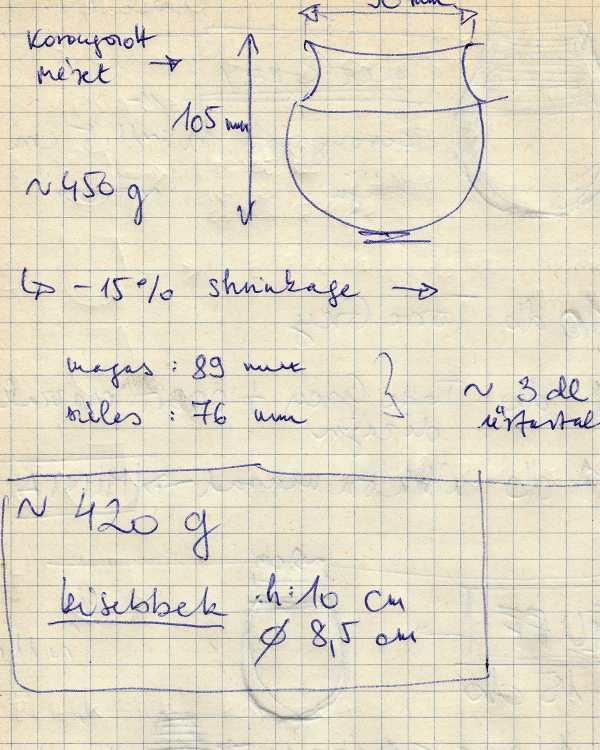 mm
Korongozott
méret →
105 mm
~ 450 g
↳ -15% shrinkage →
magas : 89 mm
széles : 76 mm
~ 3 dl
űrtartal
~ 420 g
kisebbek .h: 10 cm
ø 8,5 cm